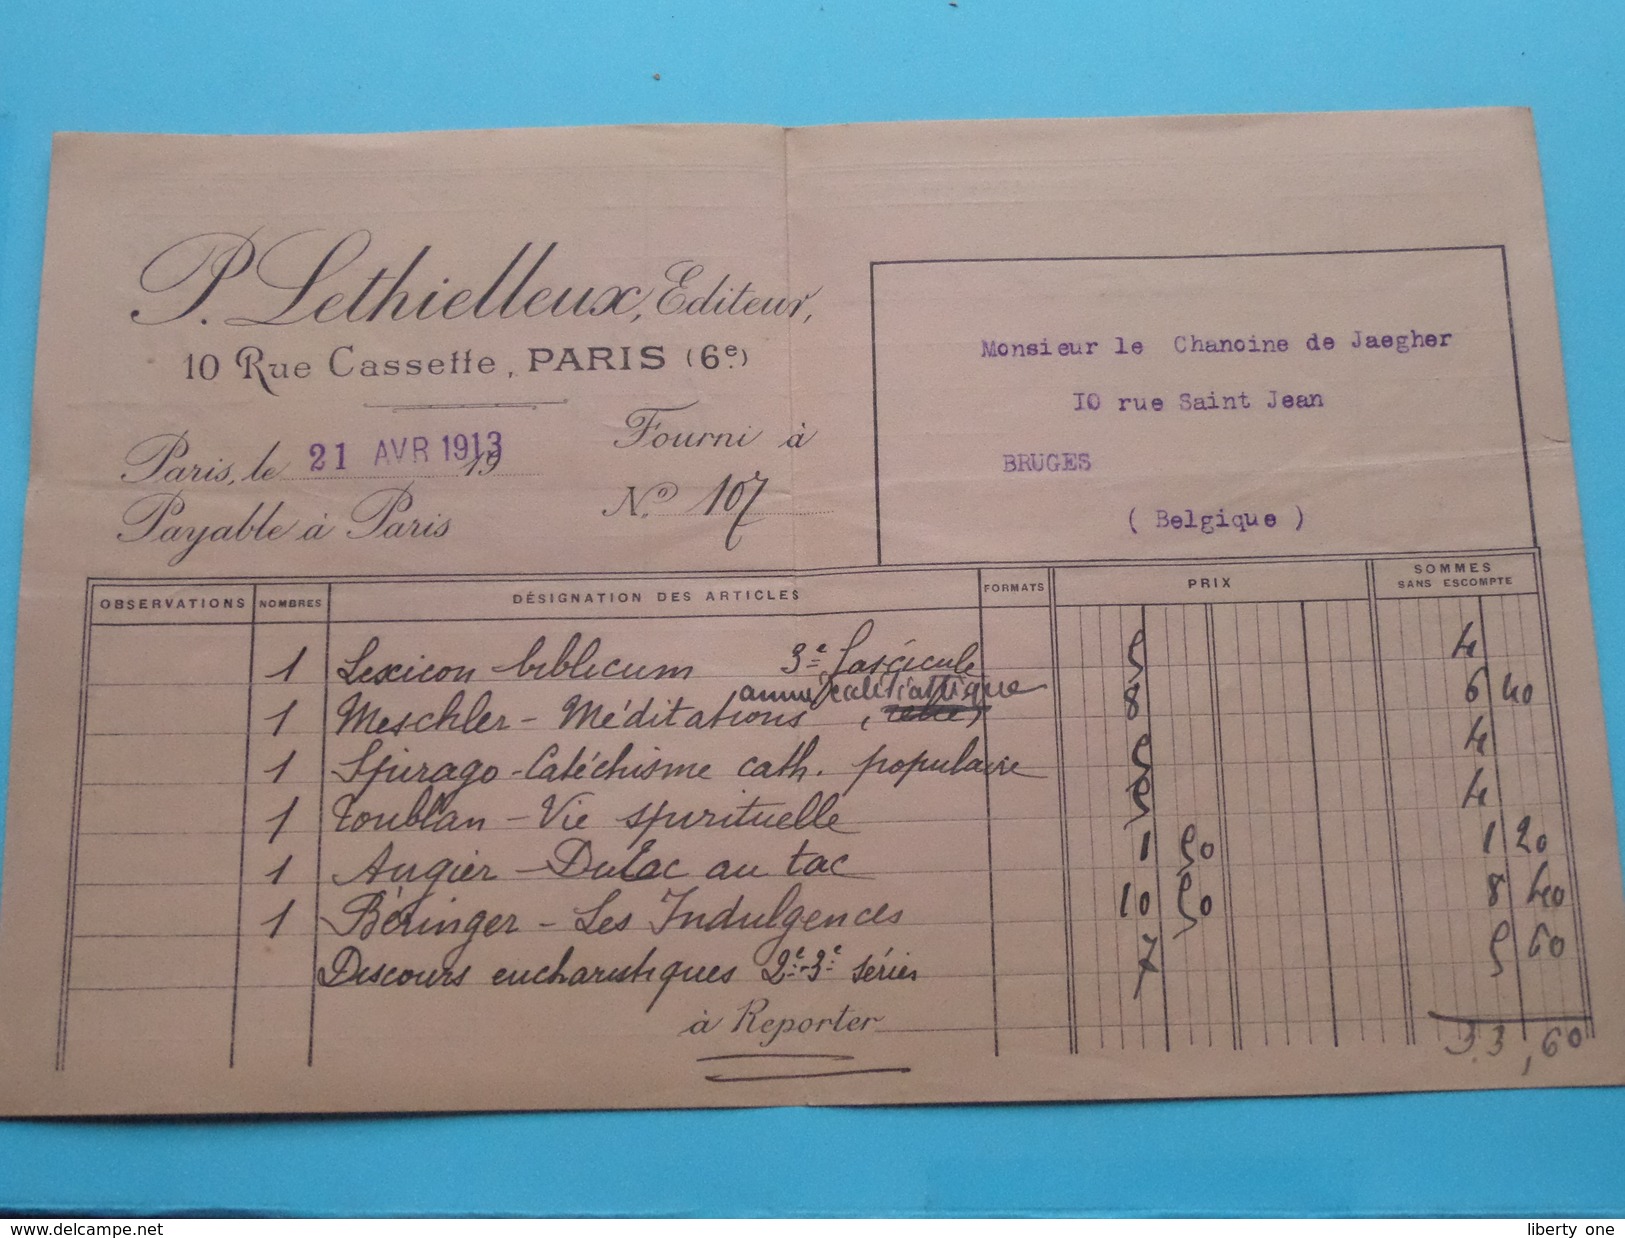 P. Lethielleux, Editeur,
10 Rue Cassette, PARIS (6e.)
Paris, le 21 AVR 1913 19
Payable à Paris
Fourni à
No. 107
Monsieur le Chanoine de Jaegher
IO rue Saint Jean
BRUGES
( Belgique )
OBSERVATIONS NOMBRES DÉSIGNATION DES ARTICLES FORMATS PRIX SOMMES SANS ESCOMPTE
1 Lexicon biblicum 3e fascicule 5 4
1 Meschler - Méditations 8 6 40
1 Spirago - Catéchisme cath. populaire 5 4
1 Toublan - Vie spirituelle 5 4
1 Augier - Du tac au tac 1 50 1 20
1 Béringer - Les Indulgences 10 50 8 40
Discours eucharistiques 2e-3e séries 7 5 60
à Reporter 33,60
www.delcampe.net
liberty one